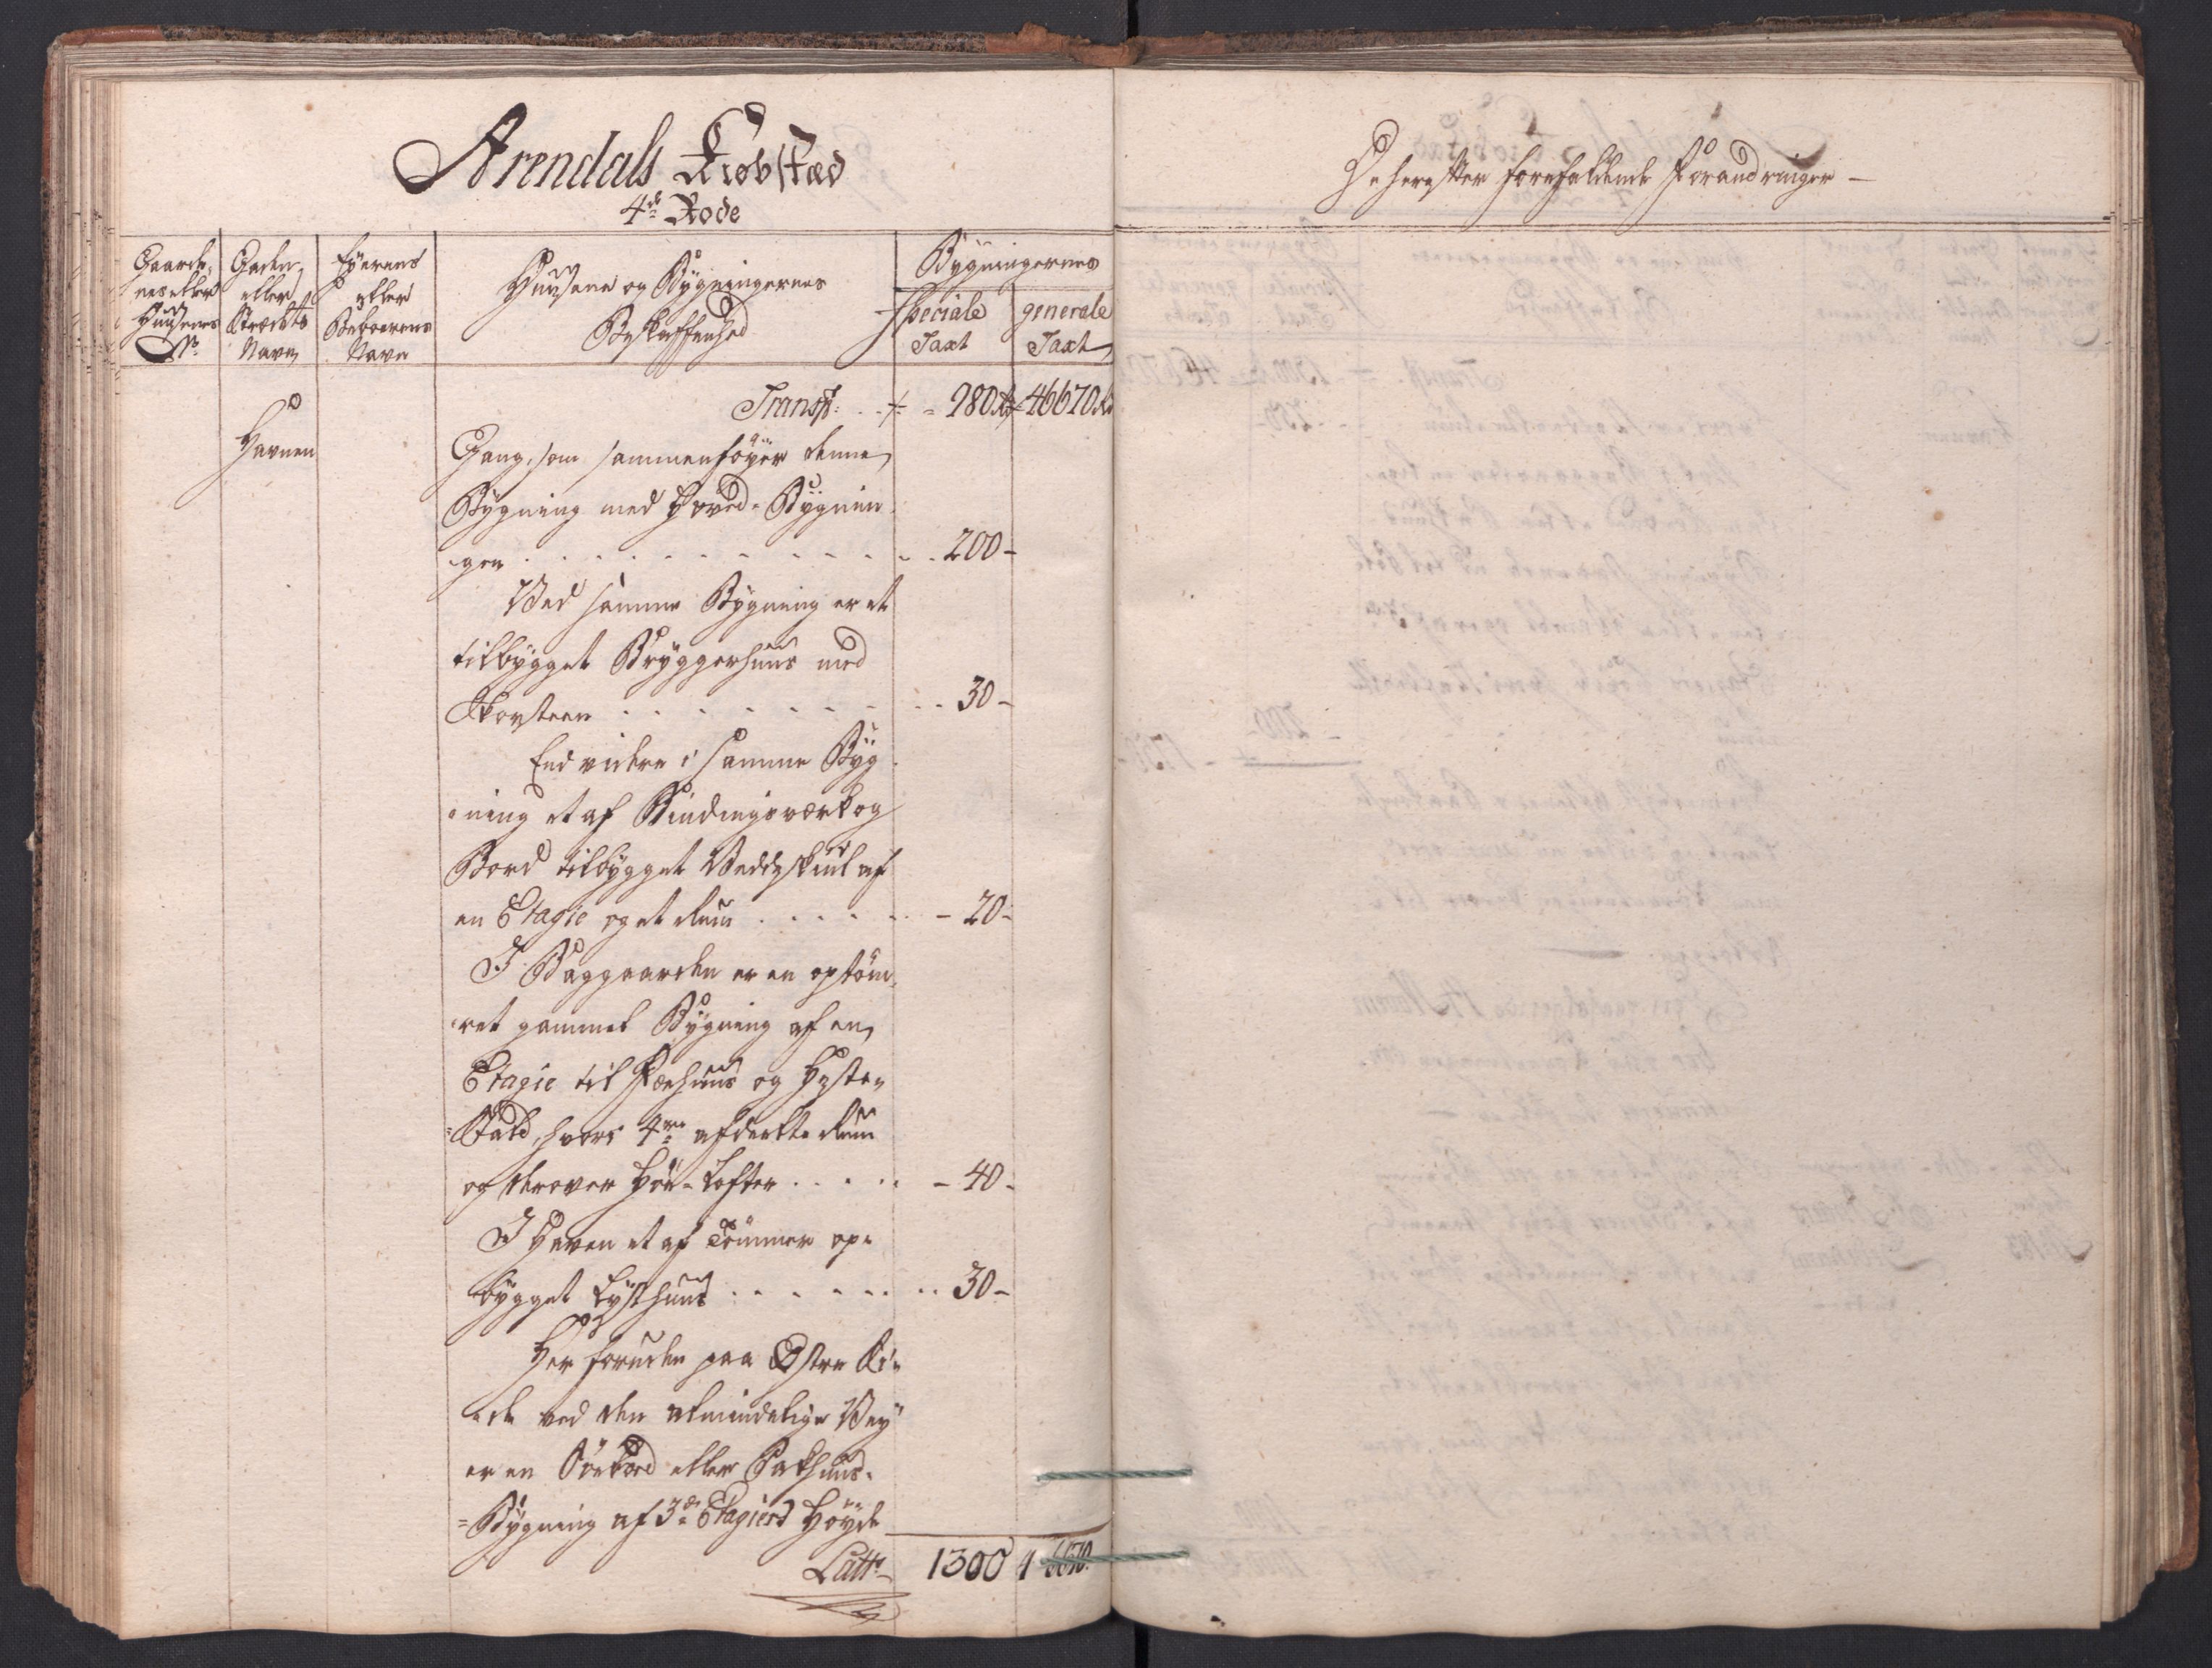 Arendals Kiøbstæd
4de Rode
Gaarde-
nes eller
Huusenes
No.
Gaden
eller
Strædets
Navn
Eyerens
eller
Beboerens
Navn
Huusene og Bygningernes
Beskaffenhed
Bygningernes
speciale
Taxt
generale
Taxt
Transp: . . 980 Rd 46670 Rd
Havnen
Gang, som sammenføyer denne
Bygning med Hoved-Bygnin
gen . . . 200 -
Ved samme Bygning er et
tilbygget Bryggerhuus med
Skorsteen . . . 30 -
End videre i samme Byg
ning et af Bindingsværk og
Bord tilbygget Vedskiul af
en Etagie og et Rum . . . - 20 -
I Baggaarden er en optøm-
ret gammel Bygning af en
Etagie til Fæehuus og Heste-
Stald, hvori 4re afdeelte Rum
og derover Høe-Lofter . . . - 40 -
I Haven et af Tømmer op-
bygget Lysthuus . . . 30 -
Her foruden paa Østre Si-
de ved den almindelige Vey
er en Søebod eller Pakhuus-
Bygning af 3de Etagiers Høyde
Latt. 1300 46670.
Deherefter forefaldende Forandringer -